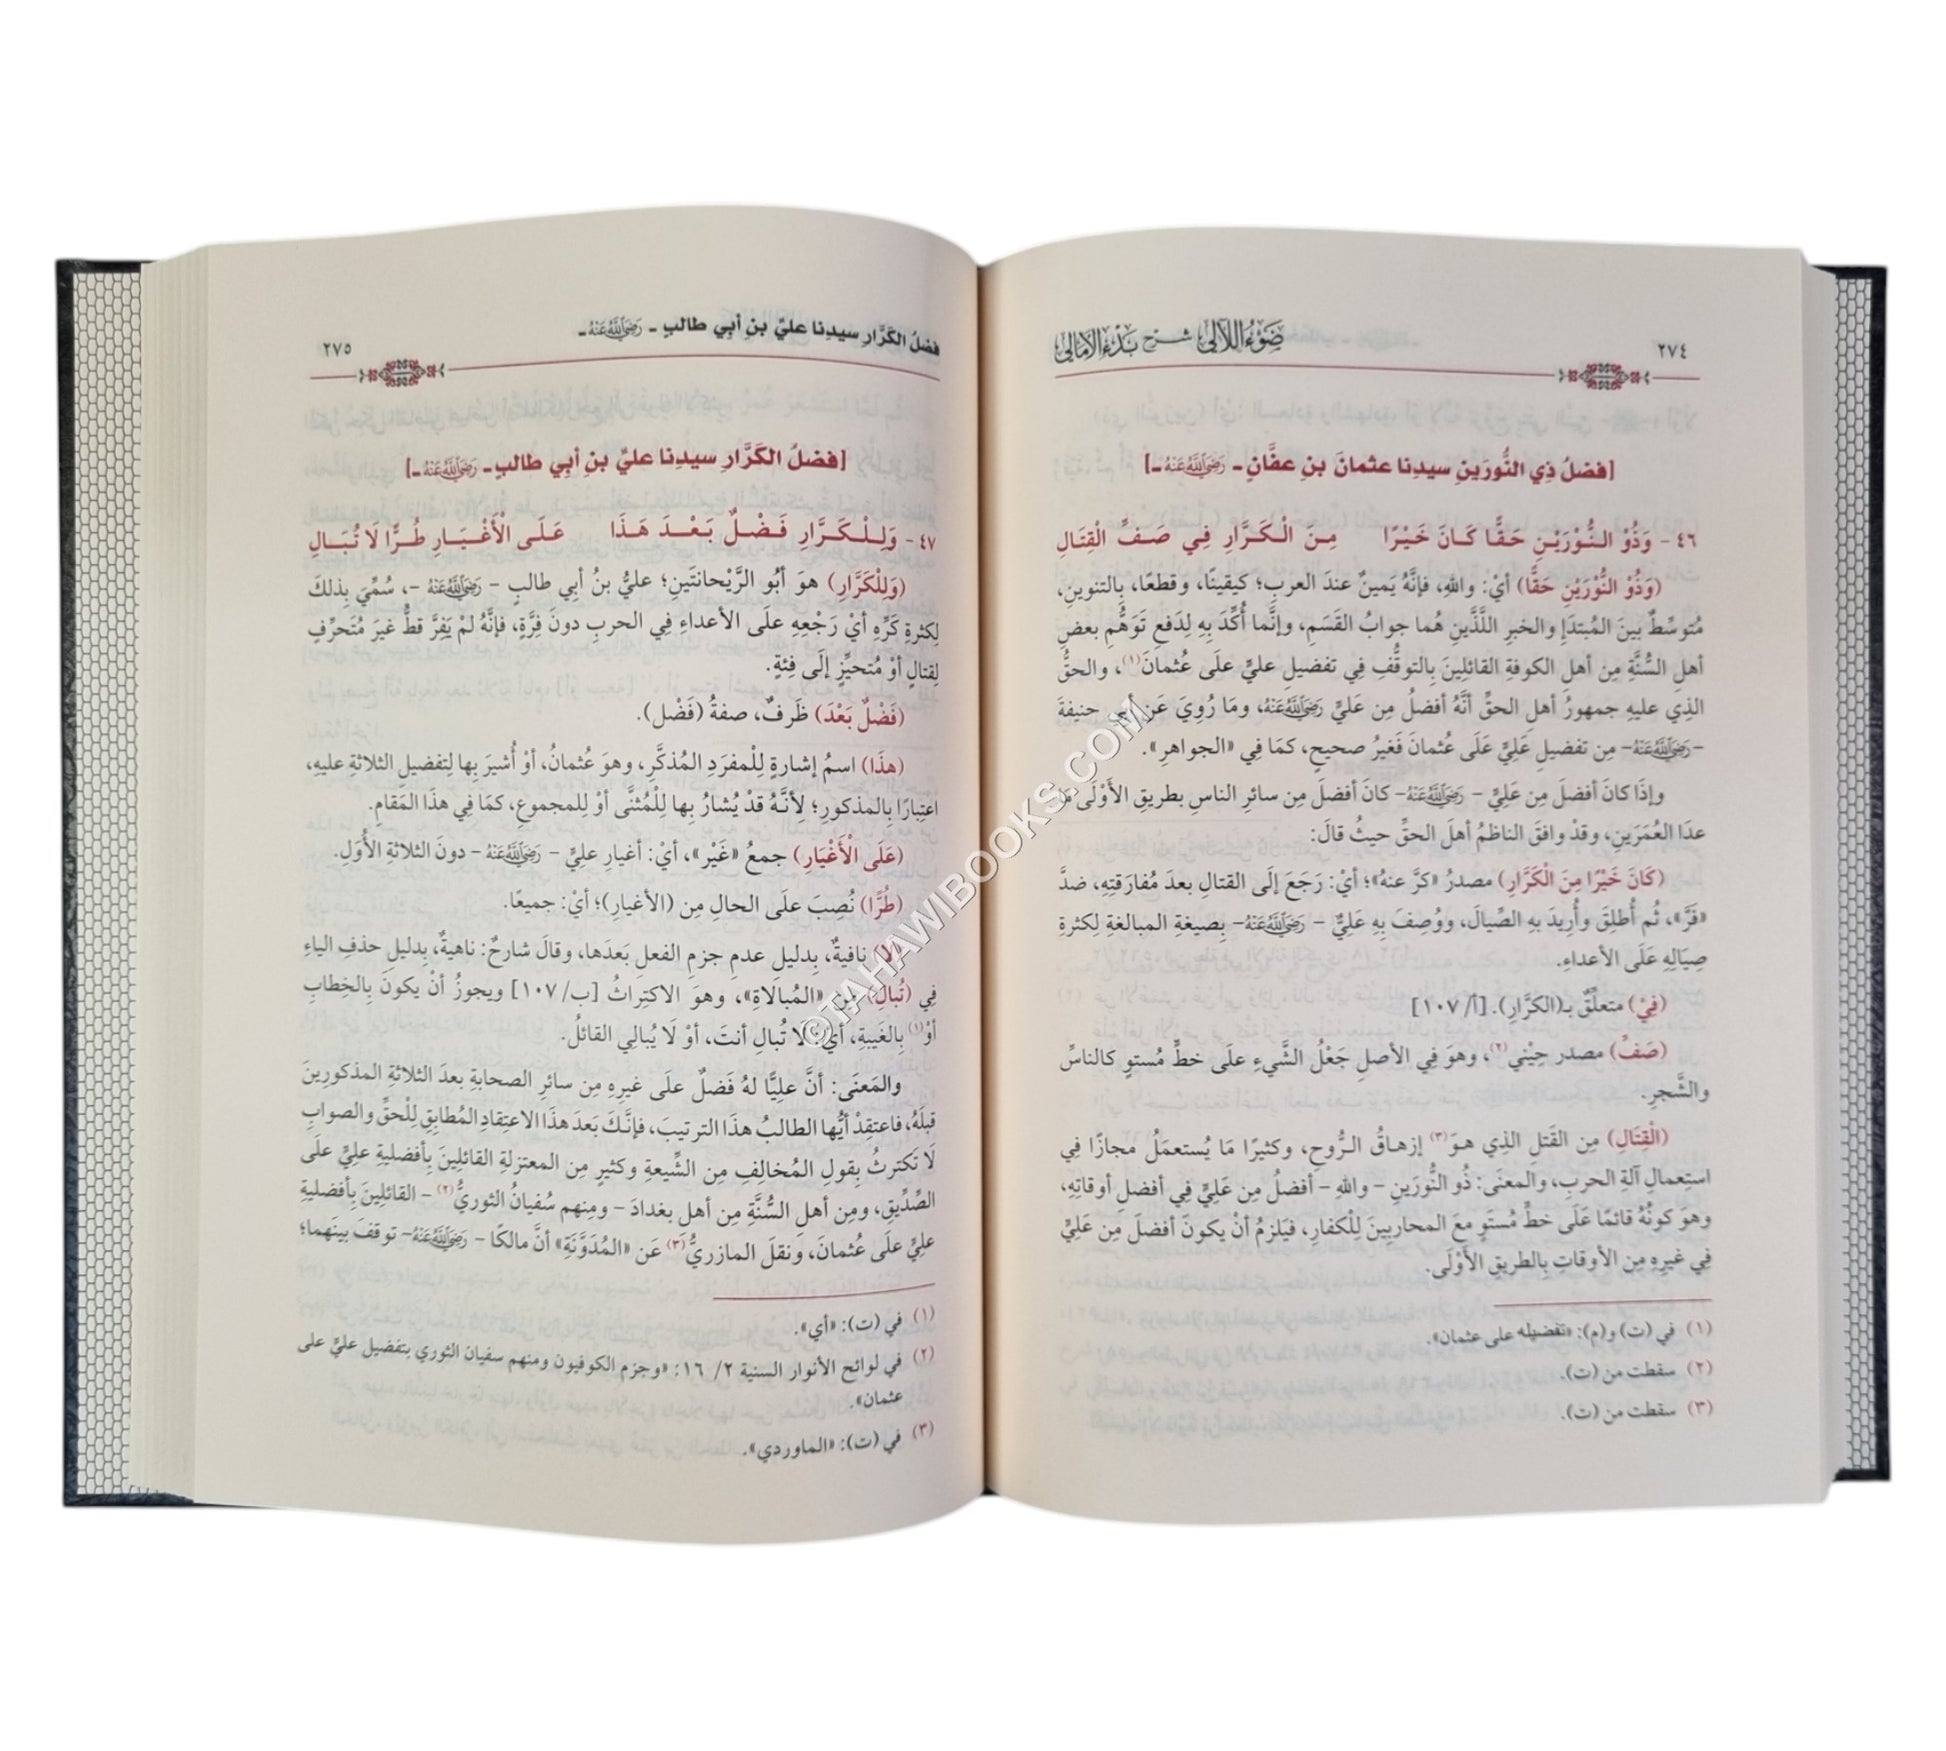 ٢٧٤
ضَوْءُ اللَّآلِي شرح بَدْءُ الأمَالِي
[فضلُ ذِي النُّورَينِ سيدِنا عثمانَ بنِ عفَّانٍ - رَضِيَ اللَّهُ عَنْهُ -]
٤٦ - وَذُو النُّوْرَيْنِ حَقًّا كَانَ خَيْرًا مِنَ الْكَرَّارِ فِي صَفِّ الْقِتَالِ
(وَذُوْ النُّوْرَيْنِ حَقًّا) أيْ: واللهِ، فإنَّهُ يَمينٌ عندَ العربِ؛ كيقينًا، وقطعًا، بِالتنوينِ،
مُتوسِّطٌ بينَ المُبتدَإِ والخبرِ اللَّذَّينِ هُما جوابُ القَسَمِ، وإنَّما أُكِّدَ بِهِ لِدَفعِ تَوَهُّمِ بعضِ
أهلِ السُّنَّةِ مِن أهلِ الكوفةِ القائلِينَ بِالتوقُّفِ فِي تفضيلِ عليٍّ علَى عُثمانَ(١)، والحقُّ
الذِي عليهِ جمهورُ أهلِ الحقِّ أنَّهُ أفضلُ مِن عَليٍّ رَضِيَ اللَّهُ عَنْهُ، ومَا رُوِيَ عَن أبِي حنيفةَ
-رَضِيَ اللَّهُ عَنْهُ- مِن تفضيلِ عَليٍّ عَلَى عُثمانَ فَغيرُ صحيحٍ، كمَا فِي «الجواهرِ».
وإذَا كانَ أفضلَ مِن عَليٍّ - رَضِيَ اللَّهُ عَنْهُ- كانَ أفضلَ مِن سائرِ الناسِ بطريقِ الأَوْلَى مَا
عدَا العُمَرَينِ، وقدْ وافقَ الناظمُ أهلَ الحقِّ حيثُ قالَ:
(كَانَ خَيْرًا مِنَ الْكَرَّارِ) مصدرُ «كرَّ عنهُ»؛ أيْ: رَجَعَ إلَى القتالِ بعدَ مُفارَقتِهِ، ضدَّ
«فَرَّ»، ثُم أُطلِقَ وأُرِيدَ به الصِّيالَ، ووُصِفَ بِهِ عَليٌّ - رَضِيَ اللَّهُ عَنْهُ- بِصيغةِ المبالغةِ لِكثرةِ
صِيَالِهِ عَلَى الأعداءِ.
(فِيْ) متعلِّقٌ بـ(الكرَّارِ). [أ/ ١٠٧]
(صَفِّ) مصدر حِيْني(٢)، وهوَ فِي الأصلِ جَعْلُ الشَّيءِ علَى خطٍّ مُستوٍ كالناسِّ
والشَّجرِ.
(الْقِتَالِ) مِن القَتلِ الذِي هوَ(٣) إزهاقُ الرُّوحِ، وكثيرًا مَا يُستعمَلُ مجازًا فِي
استِعمالِ آلةِ الحربِ، والمعنَى: ذُو النُّورَينِ - واللهِ - أفضلُ مِن عَليٍّ فِي أفضلِ أوقاتِهِ،
وهوَ كونُهُ قائمًا عَلَى خطٍّ مُستَوٍ معَ المحاربِينَ لِلْكفارِ، فيَلزمُ أنْ يكونَ أفضلَ مِن عَليٍّ
فِي غيرِهِ مِن الأوقاتِ بِالطريقِ الأَوْلَى.
(١) في (ت) و(م): «تفضيله على عثمان».
(٢) سقطت من (ت).
(٣) سقطت من (ت).
فضلُ الكَرَّارِ سيدِنا عليِّ بنِ أبِي طالبٍ - رَضِيَ اللَّهُ عَنْهُ -
٢٧٥
[فضلُ الكَرَّارِ سيدِنا عليِّ بنِ أبِي طالبٍ - رَضِيَ اللَّهُ عَنْهُ -]
٤٧ - وَلِلْكَرَّارِ فَضْلٌ بَعْدَ هَذَا عَلَى الْأَغْيَارِ طُرًّا لَا تُبَالِ
(وَلِلْكَرَّارِ) هوَ أبُو الرَّيْحانتَينِ؛ عليُّ بنُ أبِي طالبٍ - رَضِيَ اللَّهُ عَنْهُ -، سُمِّيَ بِذلكَ
لِكثرةِ كَرِّهِ أيْ رَجْعِهِ علَى الأعداءِ فِي الحربِ دونَ فِرَّةٍ، فإنَّهُ لمْ يَفِرَّ قطُّ غيرَ مُتَحرِّفٍ
لِقتالٍ أوْ مُتحيِّزٍ إلَى فِئةٍ.
(فَضْلٌ بَعْدَ) ظَرفٌ، صفةُ (فَضْل).
(هذَا) اسمُ إشارةٍ لِلْمفرَدِ المُذكَّرِ، وهوَ عُثمانُ، أوْ أُشيرَ بِها لِتفضيلِ الثلاثةِ عليهِ،
اعتِبارًا بِالمذكورِ؛ لِأنَّهُ قدْ يُشارُ بِها لِلْمُثنَّى أوْ لِلمجموعِ، كمَا فِي هذَا المَقامِ.
(عَلَى الْأَغْيَارِ) جمعُ «غَيْر»، أيْ: أغيارِ عليٍّ - رَضِيَ اللَّهُ عَنْهُ - دونَ الثلاثةِ الأُوَلِ.
(طُرًّا) نُصِبَ علَى الحالِ مِن (الأغيارِ)؛ أيْ: جميعًا.
(لَا) نافيةٌ، بِدليلِ عدمِ جزمِ الفعلِ بَعدَها، وقالَ شارحٌ: ناهيةٌ، بِدليلِ حذفِ الياءِ
فِي (تُبالِ) مِن «المُبالَاةِ»، وهوَ الاكتِراثُ [ب/ ١٠٧] ويجوزُ أنْ يكونَ بِالخِطابِ
أوْ(١) بِالغَيبةِ، أيْ: لَا تُبالِ أنتَ، أوْ لَا يُبالِي القائلُ.
والمَعنَى: أنَّ علِيًّا لهُ فَضلٌ علَى غيرِهِ مِن سائرِ الصحابةِ بعدَ الثلاثةِ المذكورِينَ
قبلَهُ، فاعتقِدْ أيُّها الطالبُ هذَا الترتيبَ، فإنَّكَ بَعدَ هذَا الاعتِقادِ المُطابِقِ لِلْحقِّ والصوابِ
لَا تَكترثُ بِقولِ المُخالِفِ مِن الشِّيعةِ وكثيرٍ مِن المعتزلةِ القائلِينَ بِأفضليةِ عليٍّ علَى
الصِّدِّيقِ، ومِن أهلِ السُّنَّةِ مِن أهلِ بغدادَ - ومِنهم سُفيانُ الثوريُّ(٢) - القائلِينَ بِأفضليةِ
عليٍّ علَى عُثمانَ، ونقلَ المازريُّ(٣) عَن «المُدَوَّنَةِ» أنَّ مالكًا - رَضِيَ اللَّهُ عَنْهُ- توقفَ بينَهما؛
(١) في (ت): «أي».
(٢) في لوائح الأنوار السنية ٢/ ١٦: «وجزم الكوفيون ومنهم سفيان الثوري بتفضيل عليٍّ على
عثمان».
(٣) في (ت): «الماوردي».
©TAHAWIBOOKS.COM